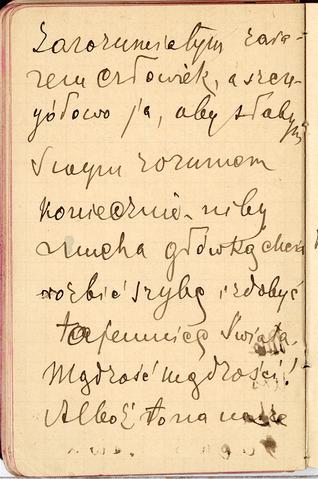 zarozumiałym zara-
zem człowiek, a szcze-
gółowo ja, aby słabym
swym rozumem
koniecznie niby
mucha główką chcieć
rozbić szybę i zdobyć
tajemnicę Świata.
Mądrość mądrości!
Alboż to na nasze